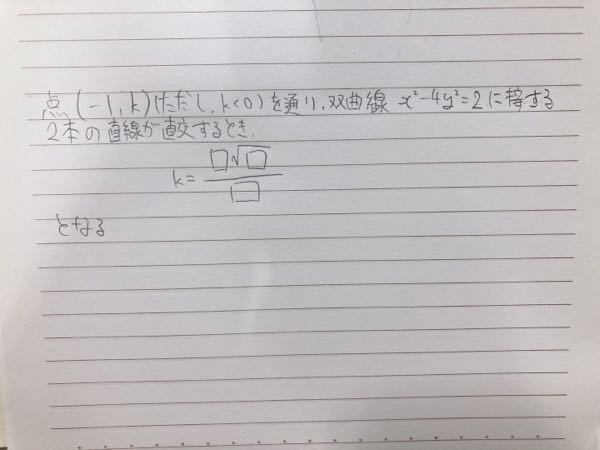 点(-1,k)(ただし,k<0)を通り,双曲線 x²-4y²=2に接する
2本の直線が直交するとき,
k=□√□/□
となる